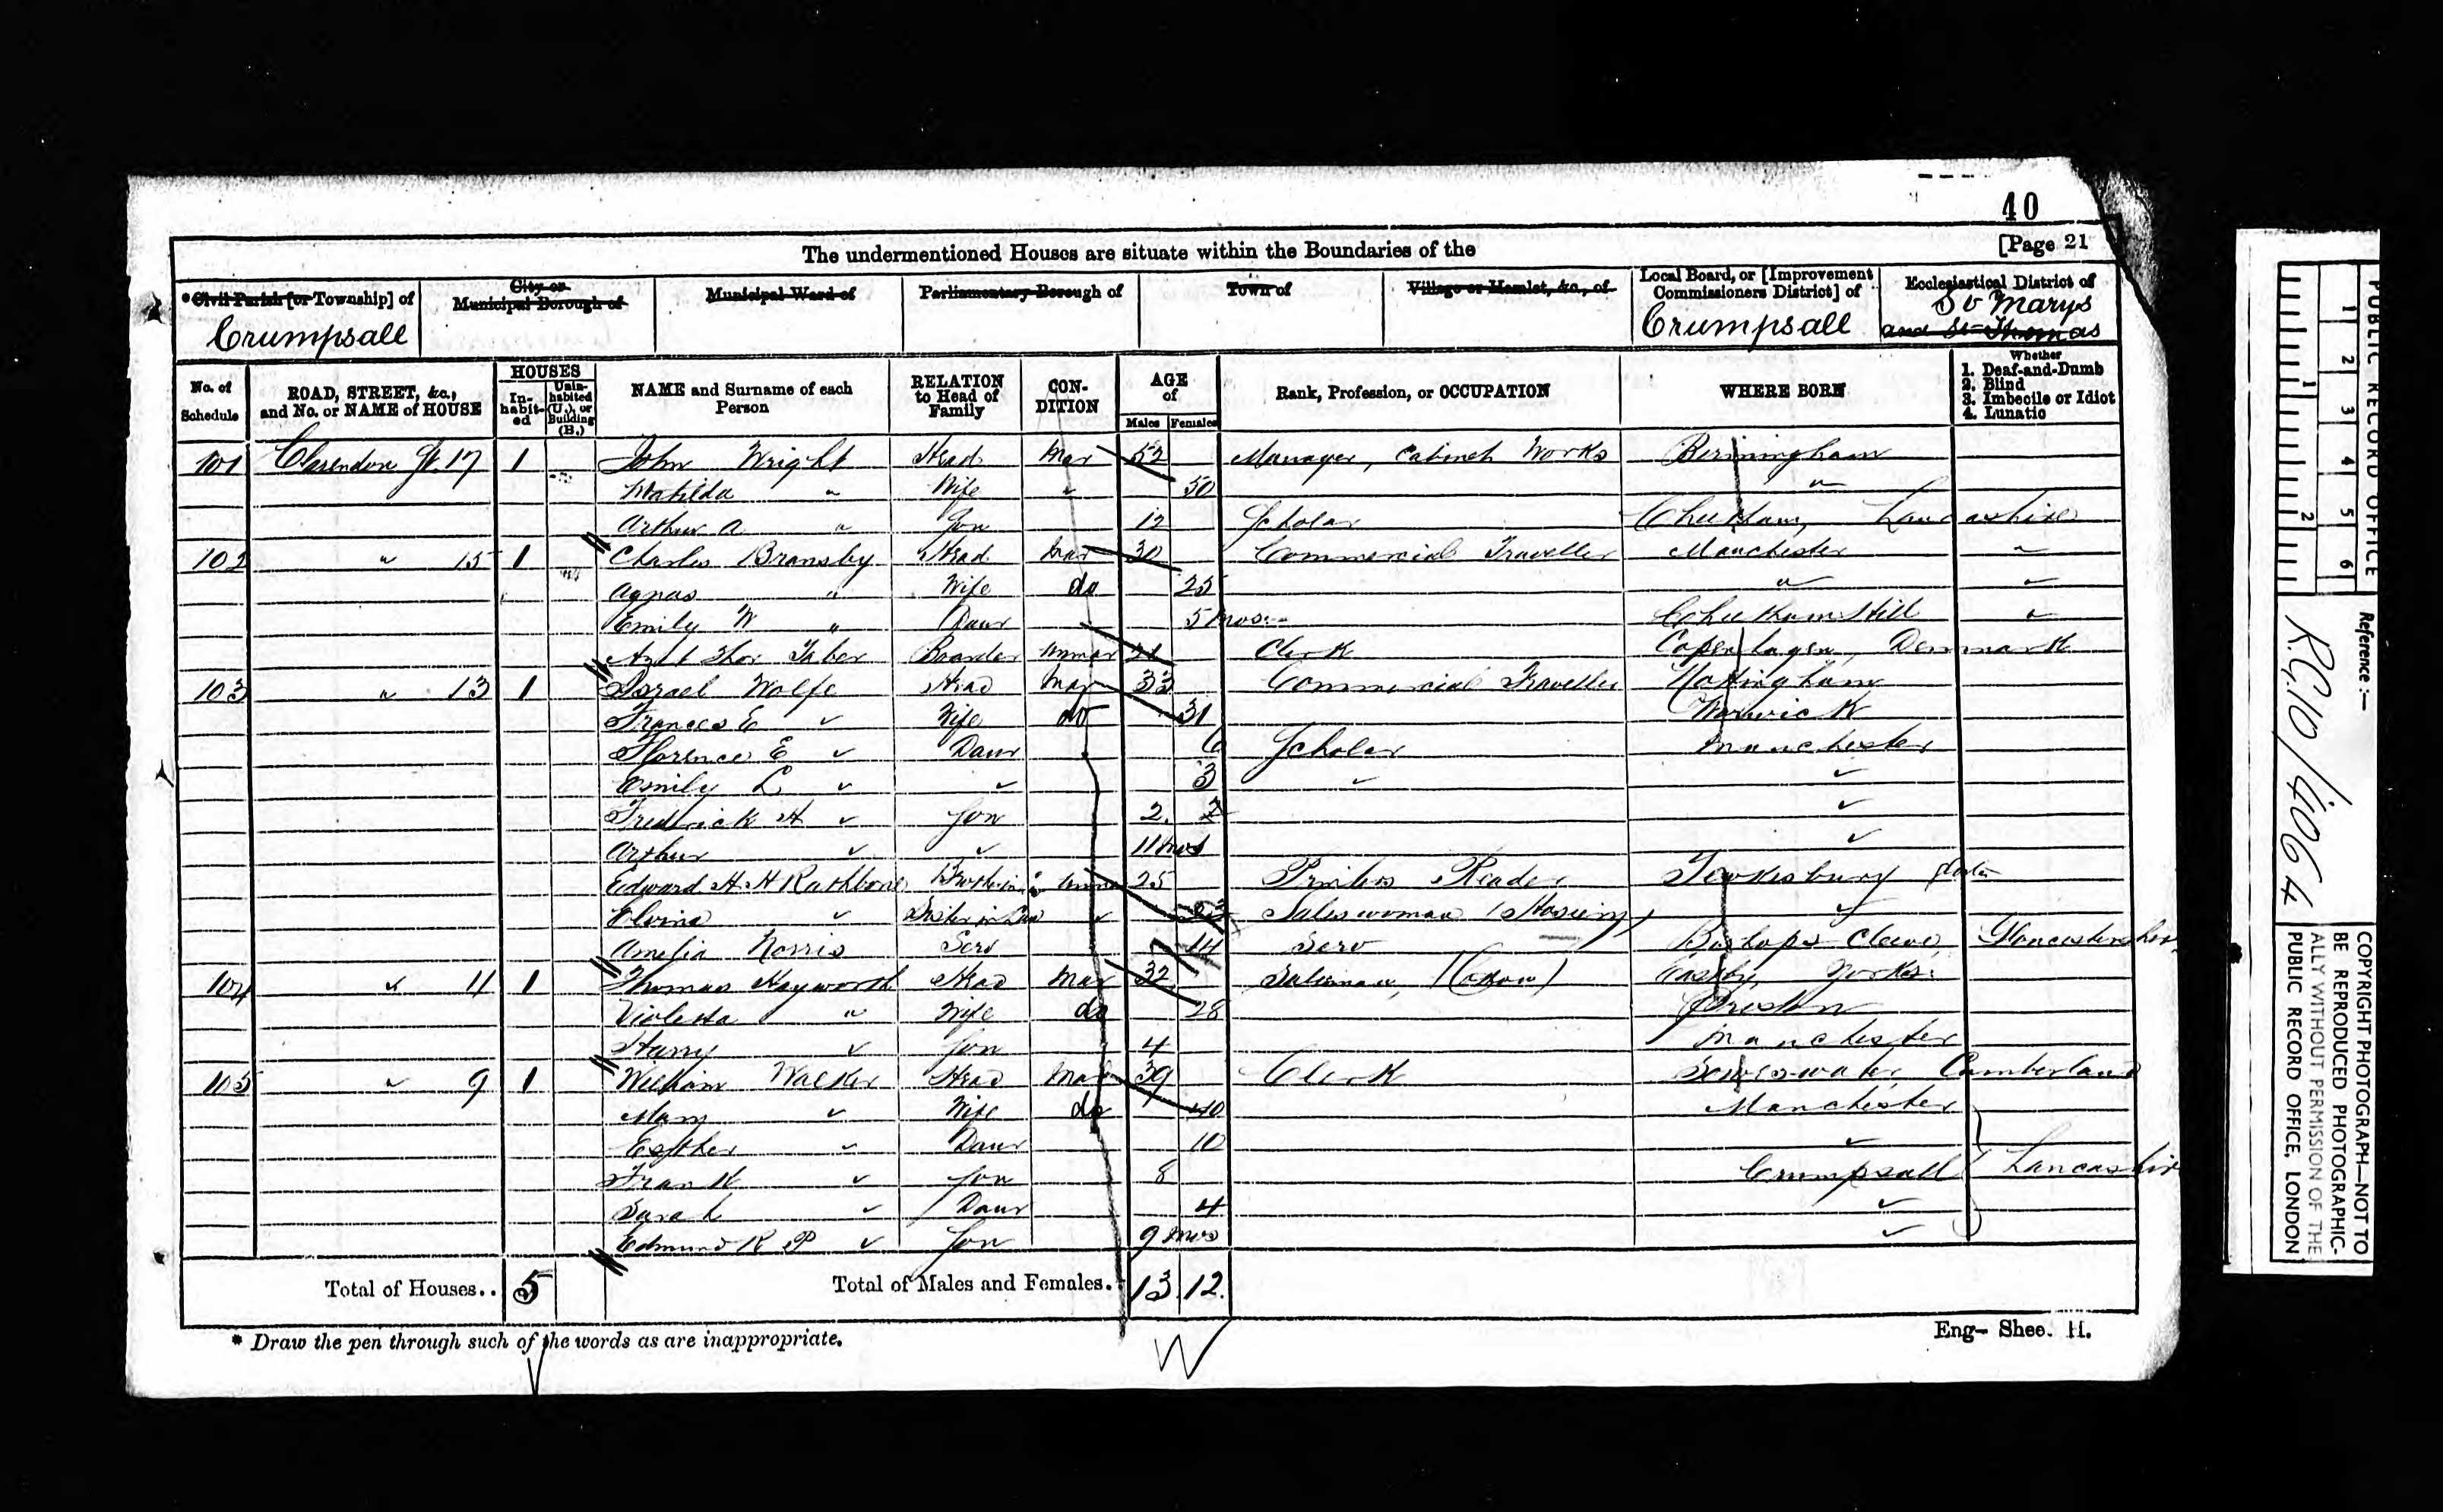 40
The undermentioned Houses are situate within the Boundaries of the [Page 21
*Civil Parish [or Township] of
City or Municipal Borough of
Municipal Ward of
Parliamentary Borough of
Town of
Village or Hamlet, &c., of
Local Board, or [Improvement Commissioners District] of
Ecclesiastical District of
Crumpsall
Crumpsall
St Marys
and St Thomas
No. of Schedule
ROAD, STREET, &c., and No. or NAME of HOUSE
HOUSES
In-habit-ed
Unin-habited (U.), or Building (B.)
NAME and Surname of each Person
RELATION to Head of Family
CON-DITION
AGE of
Males Females
Rank, Profession, or OCCUPATION
WHERE BORN
Whether
1. Deaf-and-Dumb
2. Blind
3. Imbecile or Idiot
4. Lunatic
101 Clarendon St. 17 1 John Wright Head Mar 52 Manager, Cabinet Works Birmingham
Matilda " Wife " 50 "
Arthur A " Son 12 Scholar Cheetham, Lancashire
102 " 15 1 Charles Bransby Head Mar 30 Commercial Traveller Manchester "
Agnas " Wife do 25 " "
Emily W " Daur 5 mos. Cheetham Hill "
Thor Boarder Unmar 21 Clerk Copenhagen, Denmark
103 " 13 1 Israel Wolfe Head Mar 33 Commercial Traveller Nottingham
Frances E " Wife do 31 Warwick
Florence E " Daur 6 Scholar Manchester
Emily L " " 3 " "
Fredrick H " Son 2 "
Arthur " " 11 mos "
Edward H H Rathbone 25 Printers Reader Tewkesbury
" Sister in Law " Saleswoman (Hosiery) "
Amelia Norris Serv 14 Serv Bishops Cleeve, Gloucestershire
104 " 11 1 Thomas Hayworth Head Mar 32 Salesman, Yorks.
Violetta " Wife do 28 Preston
Harry " Son 4 Manchester
105 " 9 1 William Walker Head Mar 39 Clerk Cumberland
Mary " Wife do 40 Manchester
Esther " Daur 10 "
Frank " Son 8 Crumpsall Lancashire
Sarah " Daur 4 "
Edmund R P " Son 9 mos "
Total of Houses.. 5 Total of Males and Females.. 13 12
* Draw the pen through such of the words as are inappropriate.
Eng- Shee. H.
PUBLIC RECORD OFFICE
1 2 3 4 5 6
1 2
Reference :-
R.G.10/4064
COPYRIGHT PHOTOGRAPH—NOT TO BE REPRODUCED PHOTOGRAPHIC-ALLY WITHOUT PERMISSION OF THE PUBLIC RECORD OFFICE, LONDON